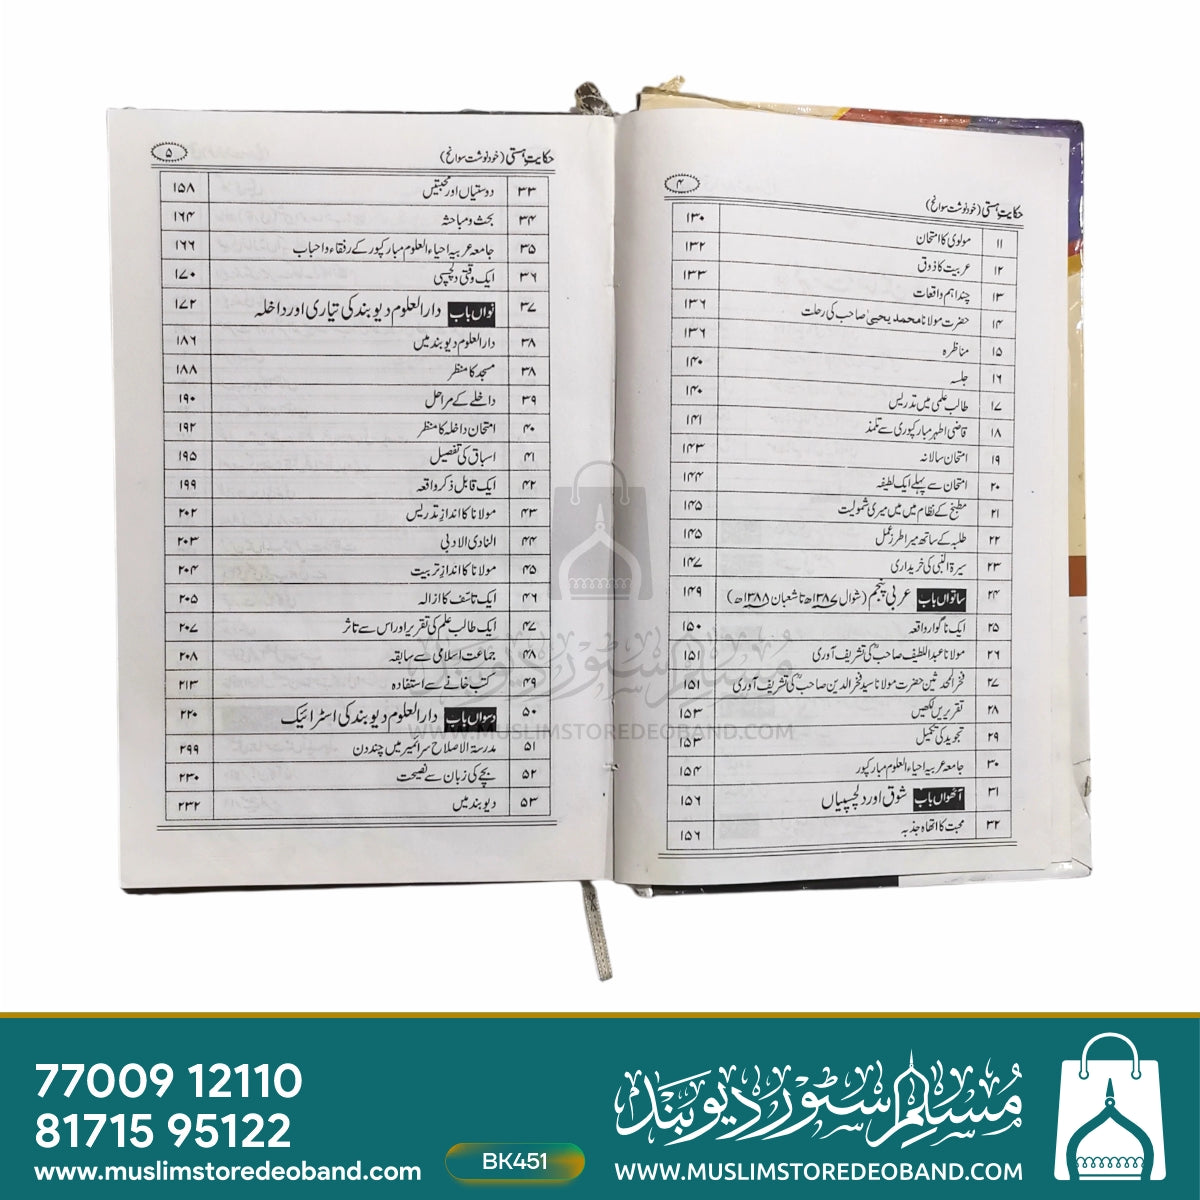 ۴
حکایت ہستی (خود نوشت سوانح)
۱۱ مولوی کا امتحان ۱۳۰
۱۲ عربیت کا ذوق ۱۳۲
۱۳ چند اہم واقعات ۱۳۳
۱۴ حضرت مولانا محمد یحییٰ صاحب کی رحلت ۱۳۶
۱۵ مناظرہ ۱۳۶
۱۶ جلسہ ۱۴۰
۱۷ طالب علمی میں تدریس ۱۴۰
۱۸ قاضی اطہر مبارکپوری سے تلمذ ۱۴۱
۱۹ امتحان سالانہ ۱۴۳
۲۰ امتحان سے پہلے ایک لطیفہ ۱۴۴
۲۱ مطبخ کے نظام میں میں میری شمولیت ۱۴۵
۲۲ طلبہ کے ساتھ میرا طرز عمل ۱۴۵
۲۳ سیرۃ النبی کی خریداری ۱۴۷
۲۴ ساتواں باب عربی پنجم (شوال ۱۳۸۷ھ تا شعبان ۱۳۸۸ھ) ۱۴۹
۲۵ ایک ناگوار واقعہ ۱۵۰
۲۶ مولانا عبد اللطیف صاحبؒ کی تشریف آوری ۱۵۱
۲۷ فخر المحدثین حضرت مولانا سید فخر الدین صاحبؒ کی تشریف آوری ۱۵۱
۲۸ تقریریں لکھیں ۱۵۳
۲۹ تجوید کی تکمیل ۱۵۳
۳۰ جامعہ عربیہ احیاء العلوم مبارکپور ۱۵۴
۳۱ آٹھواں باب شوق اور دلچسپیاں ۱۵۶
۳۲ محبت کا اتھاہ جذبہ ۱۵۶
۵
حکایت ہستی (خود نوشت سوانح)
۳۳ دوستیاں اور محبتیں ۱۵۸
۳۴ بحث و مباحثہ ۱۶۴
۳۵ جامعہ عربیہ احیاء العلوم مبارکپور کے رفقاء و احباب ۱۶۶
۳۶ ایک وقتی دلچسپی ۱۷۰
۳۷ نواں باب دار العلوم دیوبند کی تیاری اور داخلہ ۱۷۲
۳۸ دار العلوم دیوبند میں ۱۸۶
۳۸ مسجد کا منظر ۱۸۸
۳۹ داخلے کے مراحل ۱۹۰
۴۰ امتحان داخلہ کا منظر ۱۹۲
۴۱ اسباق کی تفصیل ۱۹۵
۴۲ ایک قابل ذکر واقعہ ۱۹۹
۴۳ مولانا کا انداز تدریس ۲۰۲
۴۴ النادی الادبی ۲۰۳
۴۵ مولانا کا انداز تربیت ۲۰۴
۴۶ ایک تأسف کا ازالہ ۲۰۵
۴۷ ایک طالب علم کی تقریر اور اس سے تاثر ۲۰۷
۴۸ جماعت اسلامی سے سابقہ ۲۰۸
۴۹ کتب خانے سے استفادہ ۲۱۳
۵۰ دسواں باب دار العلوم دیوبند کی اسٹرائیک ۲۲۰
۵۱ مدرسۃ الاصلاح سرائمیر میں چند دن ۲۹۹
۵۲ بچے کی زبان سے نصیحت ۲۳۰
۵۳ دیوبند میں ۲۳۲
مسلم سٹور دیوبند
WWW.MUSLIMSTOREDEOBAND.COM
77009 12110
81715 95122
www.muslimstoredeoband.com
BK451
مسلم سٹور دیوبند
WWW.MUSLIMSTOREDEOBAND.COM